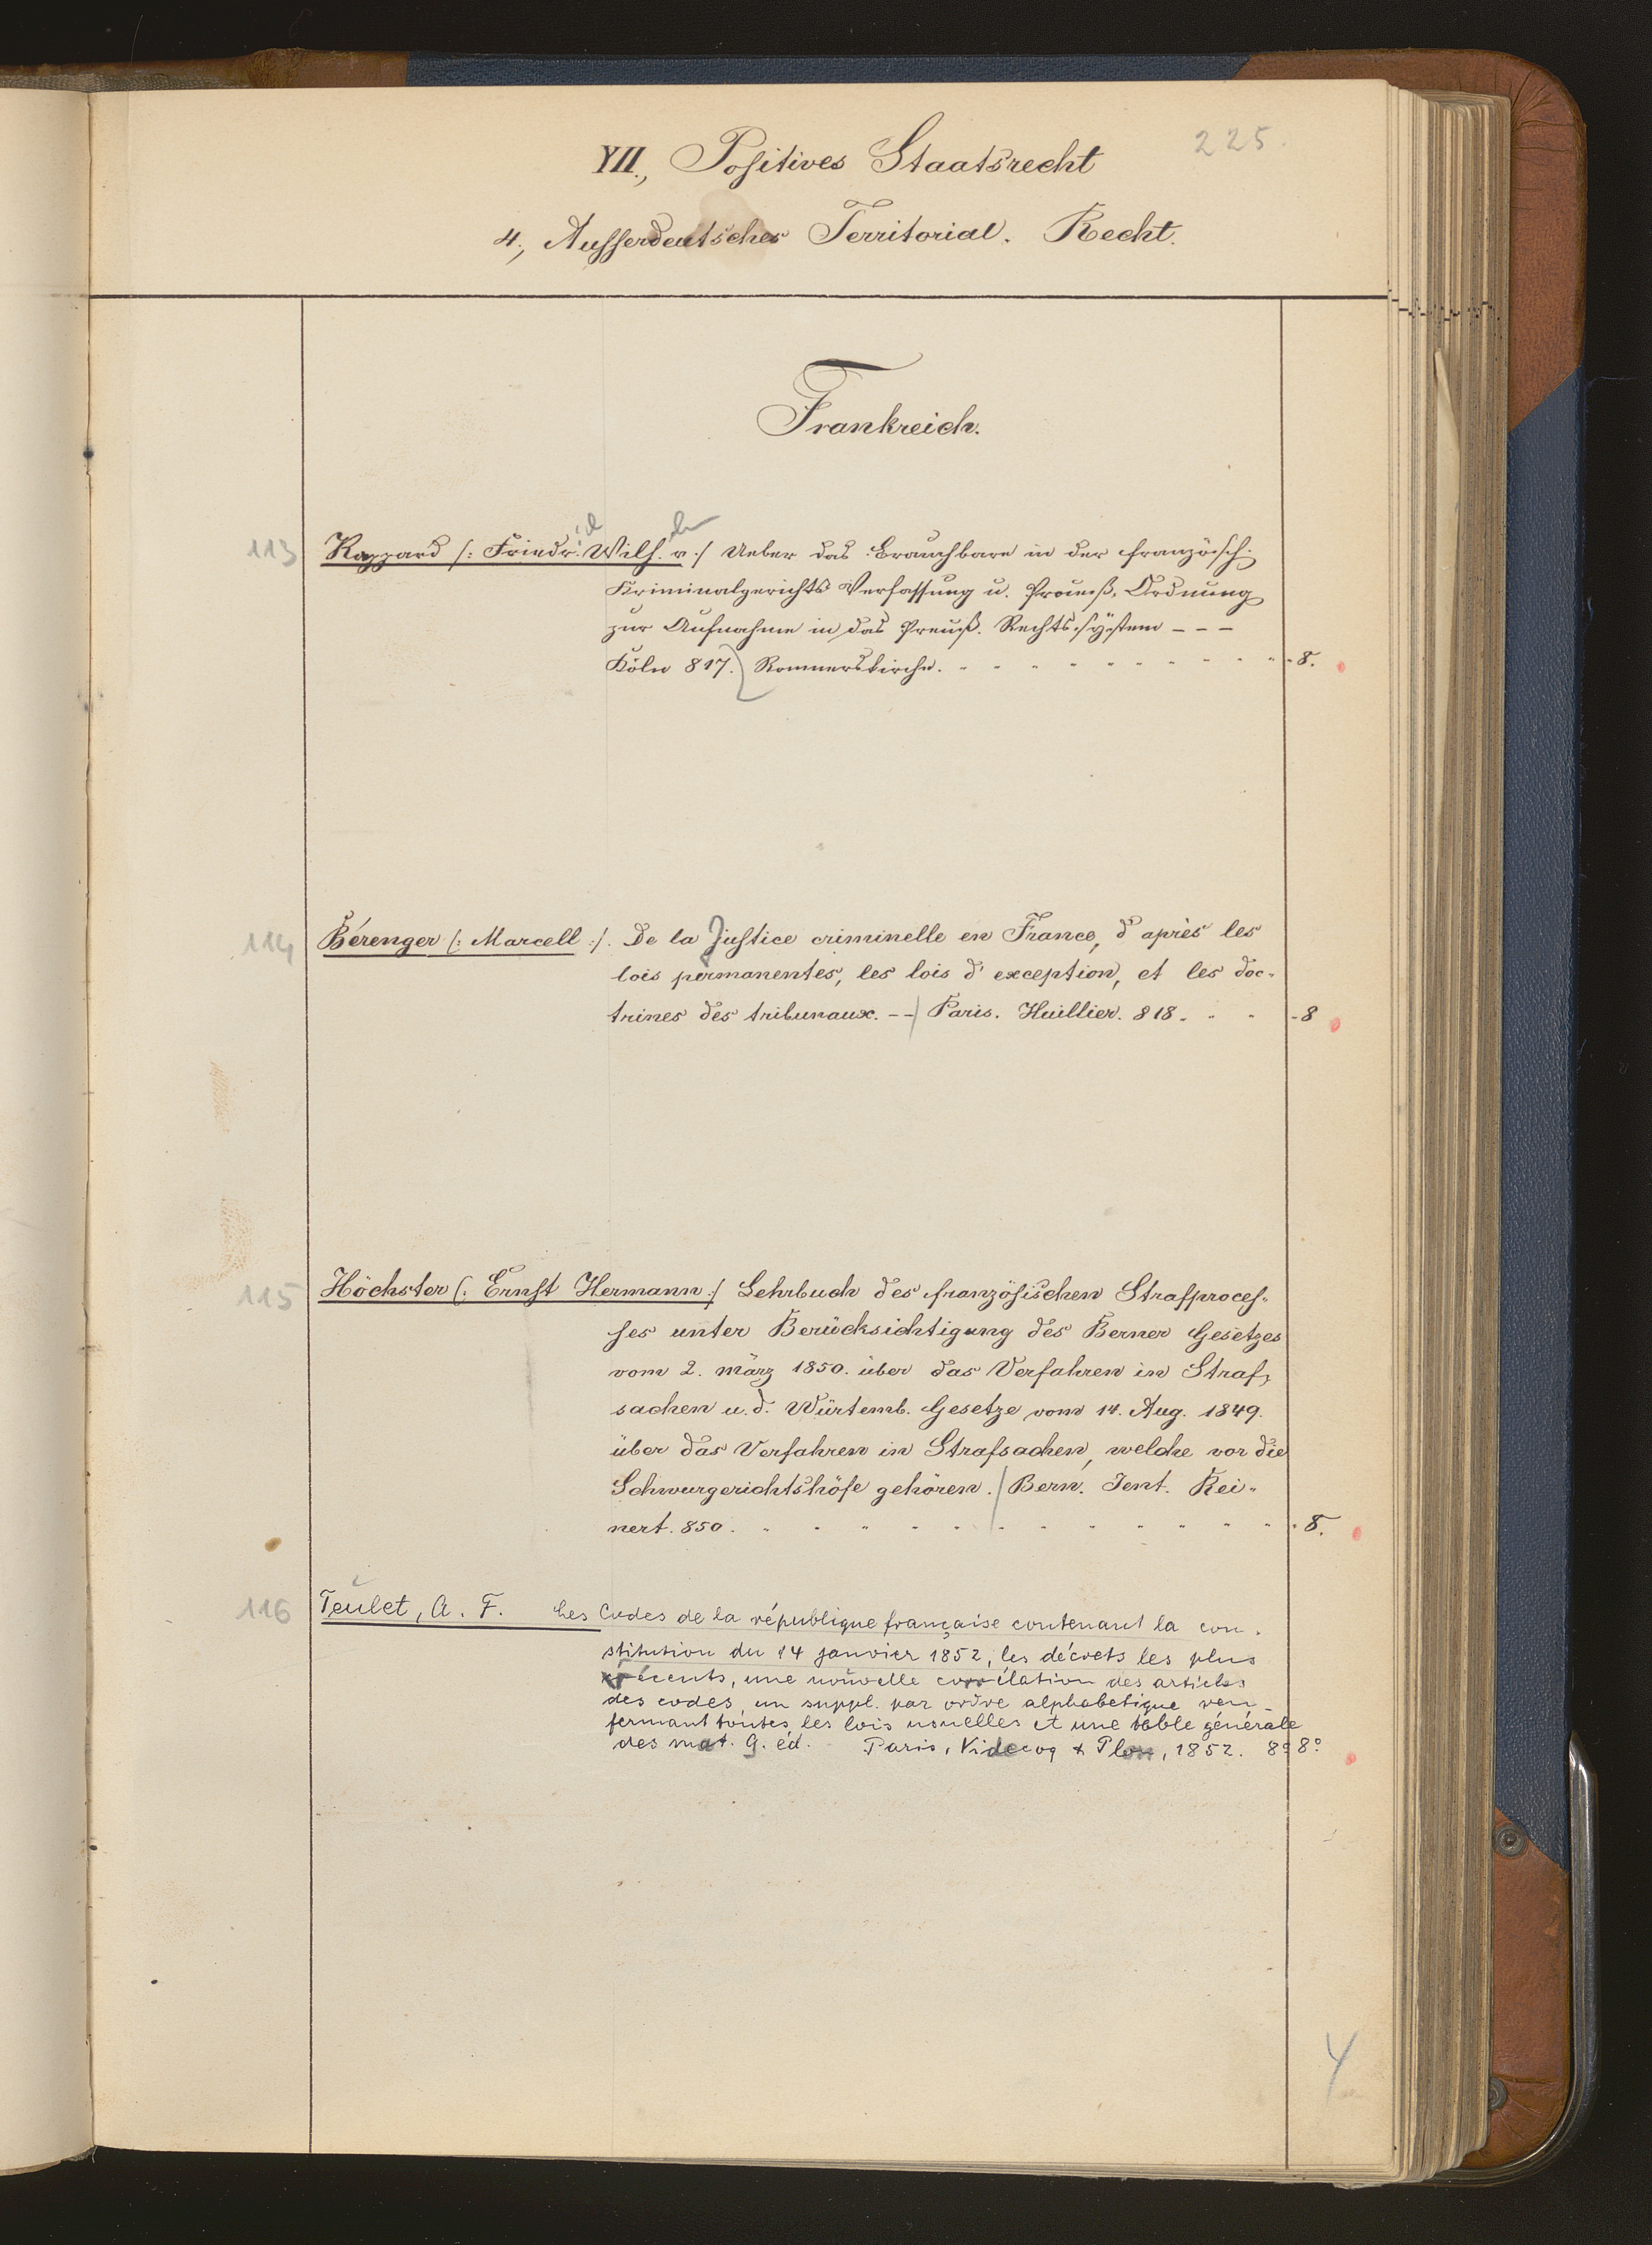 225.
VII., Positives Staatsrecht
4., Ausserdeutsches Territorial. Recht.
Frankreich.
113 Rappard /: Friedr. Wilh. v :/ Ueber das Brauchbare in der französisch.
Kriminalgerichts Verfassung u. Prozeß. Ordnung
zur Aufnahme in das Preuß. Rechts system - - -
Köln 817. Rommerskirchen. 8.
114 Bérenger /: Marcell :/. De la Justice criminelle en France, d'après les
lois permanentes, les lois d'exception, et les doc-
trines des tribunaux. - - Paris. Huillier. 818. 8
115 Höchster (: Ernst Hermann :/ Lehrbuch des französischen Strafproces-
ses unter Berücksichtigung des Berner Gesetzes
vom 2. März 1850. über das Verfahren in Straf-
sachen u. d. Würtemb. Gesetze vom 14. Aug. 1849.
über das Verfahren in Strafsachen, welche vor die
Schwurgerichtshöfe gehören. / Bern. Jent. Rei-
nert. 850. 8.
116 Teulet, A. F. Les Codes de la république française contenant la con-
stitution du 14 janvier 1852, les décrets les plus
récents, une nouvelle corrélation des articles
des codes, un suppl. par ordre alphabetique ren-
fermant toutes les lois usuelles et une table générale
des mat. 9. éd. Paris, Videcoq & Plon, 1852. 8° 8°
4